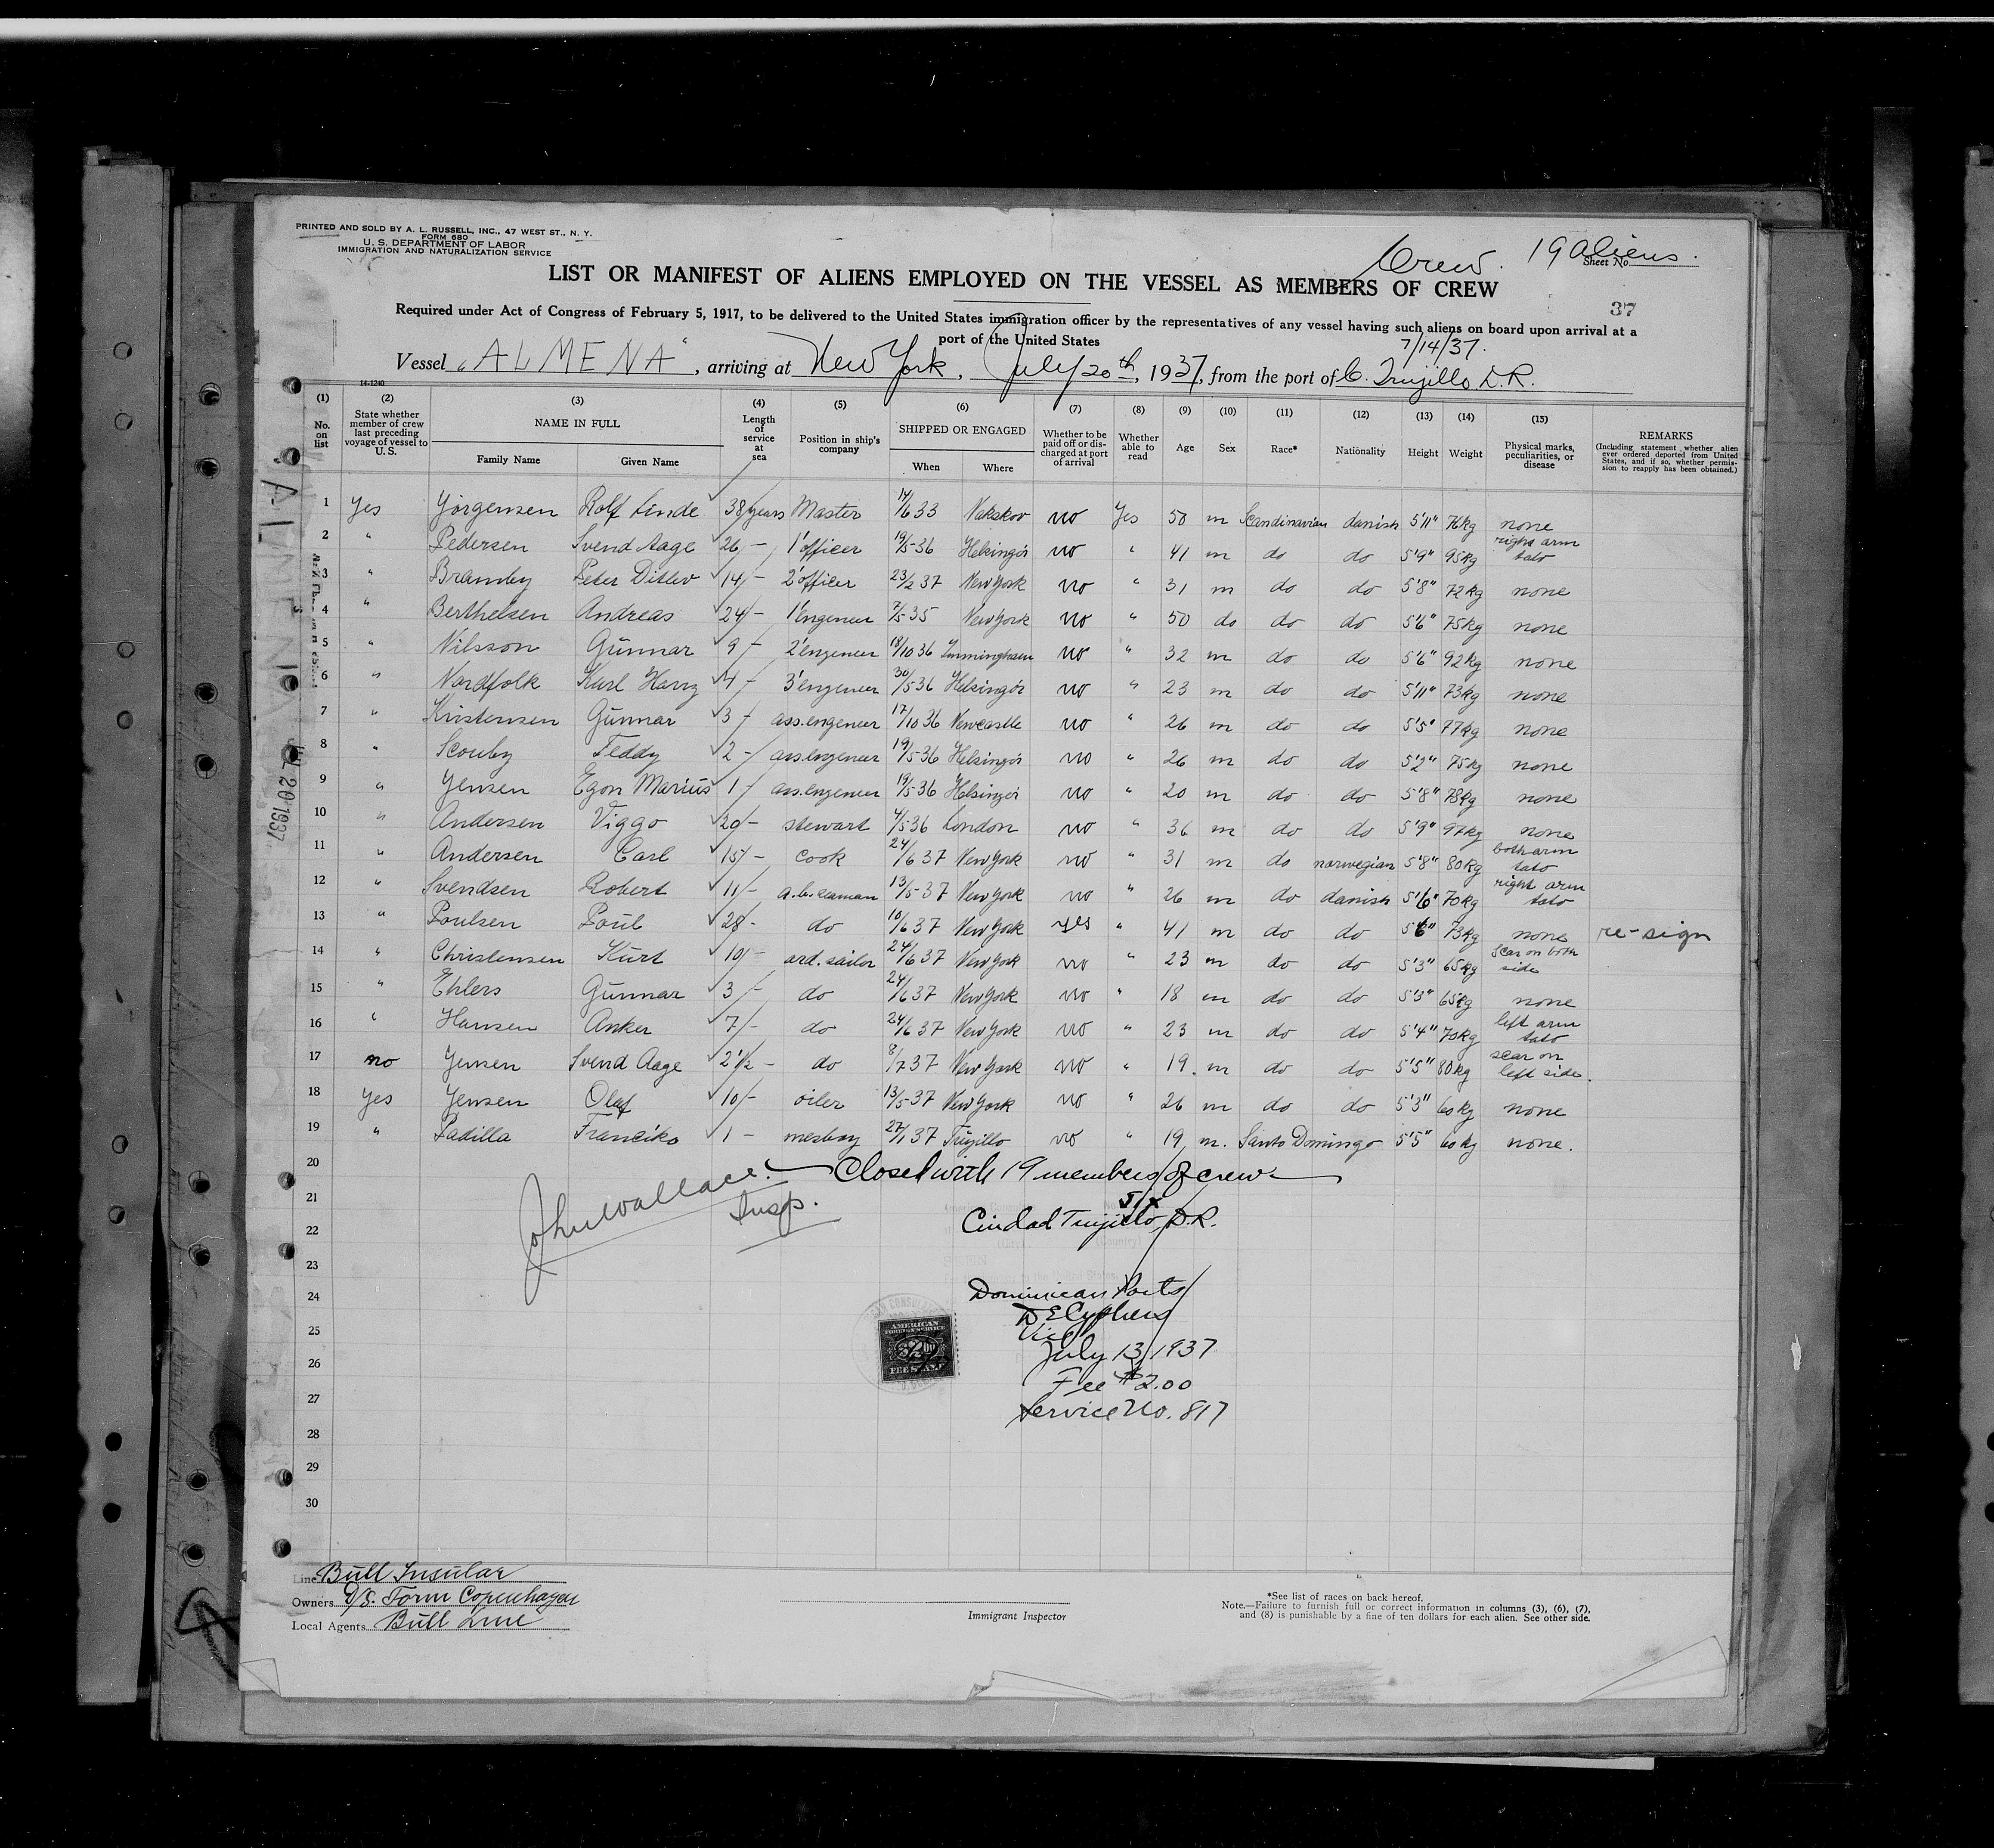 PRINTED AND SOLD BY A. L. RUSSELL, INC., 47 WEST ST., N. Y.
FORM 680
U. S. DEPARTMENT OF LABOR
IMMIGRATION AND NATURALIZATION SERVICE
Crew. 19 aliens.
Sheet No.
LIST OR MANIFEST OF ALIENS EMPLOYED ON THE VESSEL AS MEMBERS OF CREW
37
Required under Act of Congress of February 5, 1917, to be delivered to the United States immigration officer by the representatives of any vessel having such aliens on board upon arrival at a
port of the United States
7/14/37.
Vessel "ALMENA", arriving at New York, July 20th, 1937, from the port of C. Trujillo D.R.
14-1240
(1) (2) (3) (4) (5) (6) (7) (8) (9) (10) (11) (12) (13) (14) (15)
No. on list
State whether member of crew last preceding voyage of vessel to U.S.
NAME IN FULL
Family Name Given Name
Length of service at sea
Position in ship's company
SHIPPED OR ENGAGED
When Where
Whether to be paid off or discharged at port of arrival
Whether able to read
Age Sex Race* Nationality Height Weight
Physical marks, peculiarities, or disease
REMARKS
(Including statement whether alien ever ordered deported from United States, and if so, whether permission to reapply has been obtained.)
1 Yes Yørgensen Rolf Linde 38 years Master 14/6 33 Nakskov no Yes 50 m Scandinavian danish 5'11" 76kg none
2 " Pedersen Svend Aage 26 - 1' officer 19/5-36 Helsingör no " 41 m do do 5'9" 95kg right arm tato
3 " Bramby Peter Ditlev 14 - 2' officer 23/2 37 New York no " 31 m do do 5'8" 72kg none
4 " Berthelsen Andreas 24 - 1' engeneer 7/5-35 New York no " 50 do do do 5'6" 75kg none
5 " Nilsson Gunnar 9 - 2' engeneer 18/10 36 Immingham no " 32 m do do 5'6" 92kg none
6 " Nordfolk Karl Harry 4 - 3' engeneer 30/5 36 Helsingör no " 23 m do do 5'11" 73kg none
7 " Kristensen Gunnar 3 - ass. engeneer 17/10 36 Newcastle no " 26 m do do 5'5" 77kg none
8 " Scouby Teddy 2 - ass. engeneer 19/5-36 Helsingör no " 26 m do do 5'2" 75kg none
9 " Yensen Egon Marius 1 - ass. engeneer 19/5 36 Helsingör no " 20 m do do 5'8" 78kg none
10 " Andersen Viggo 20 - stewart 4/5 36 London no " 36 m do do 5'9" 97kg none
11 " Andersen Carl 15 - cook 24/6 37 New York no " 31 m do norwegian 5'8" 80kg both arm tato
12 " Svendsen Robert 11 - a.b. seaman 13/5-37 New York no " 26 m do danish 5'6" 70kg right arm tato
13 " Poulsen Poul 28 - do 10/6 37 New York yes " 41 m do do 5'6" 73kg none re-sign
14 " Christensen Kurt 10 - ord. sailor 24/6 37 New York no " 23 m do do 5'3" 65kg scar on both side
15 " Ehlers Gunnar 3 - do 24/6 37 New York no " 18 m do do 5'3" 65kg none
16 " Hansen Anker 7 - do 24/6 37 New York no " 23 m do do 5'4" 70kg left arm tato
17 no Yensen Svend Aage 2 1/2 - do 8/7 37 New York no " 19. m do do 5'5" 80kg scar on left side.
18 Yes Yensen Olaf 10 - oiler 13/5-37 New York no " 26 m do do 5'3" 60kg none
19 " Padilla Franciko 1 - mesboy 27/1 37 Trujillo no " 19 m. Santo Domingo 5'5" 60kg none.
20 Closed with 19 members of crew
John Wallace. Insp.
21
22 Ciudad Trujillo, D.R.
23
24 Dominican Ports
25
Vice
26 July 13, 1937
27 Fee $2.00
Service No. 817
28
29
30
AMERICAN
FOREIGN SERVICE
$2.00
FEE STAMP
ALMENA
JUL 20 1937
Line Bull Insular
Owners D/S. Torm Copenhagen
Local Agents Bull Line
Immigrant Inspector
*See list of races on back hereof.
Note.—Failure to furnish full or correct information in columns (3), (6), (7),
and (8) is punishable by a fine of ten dollars for each alien. See other side.